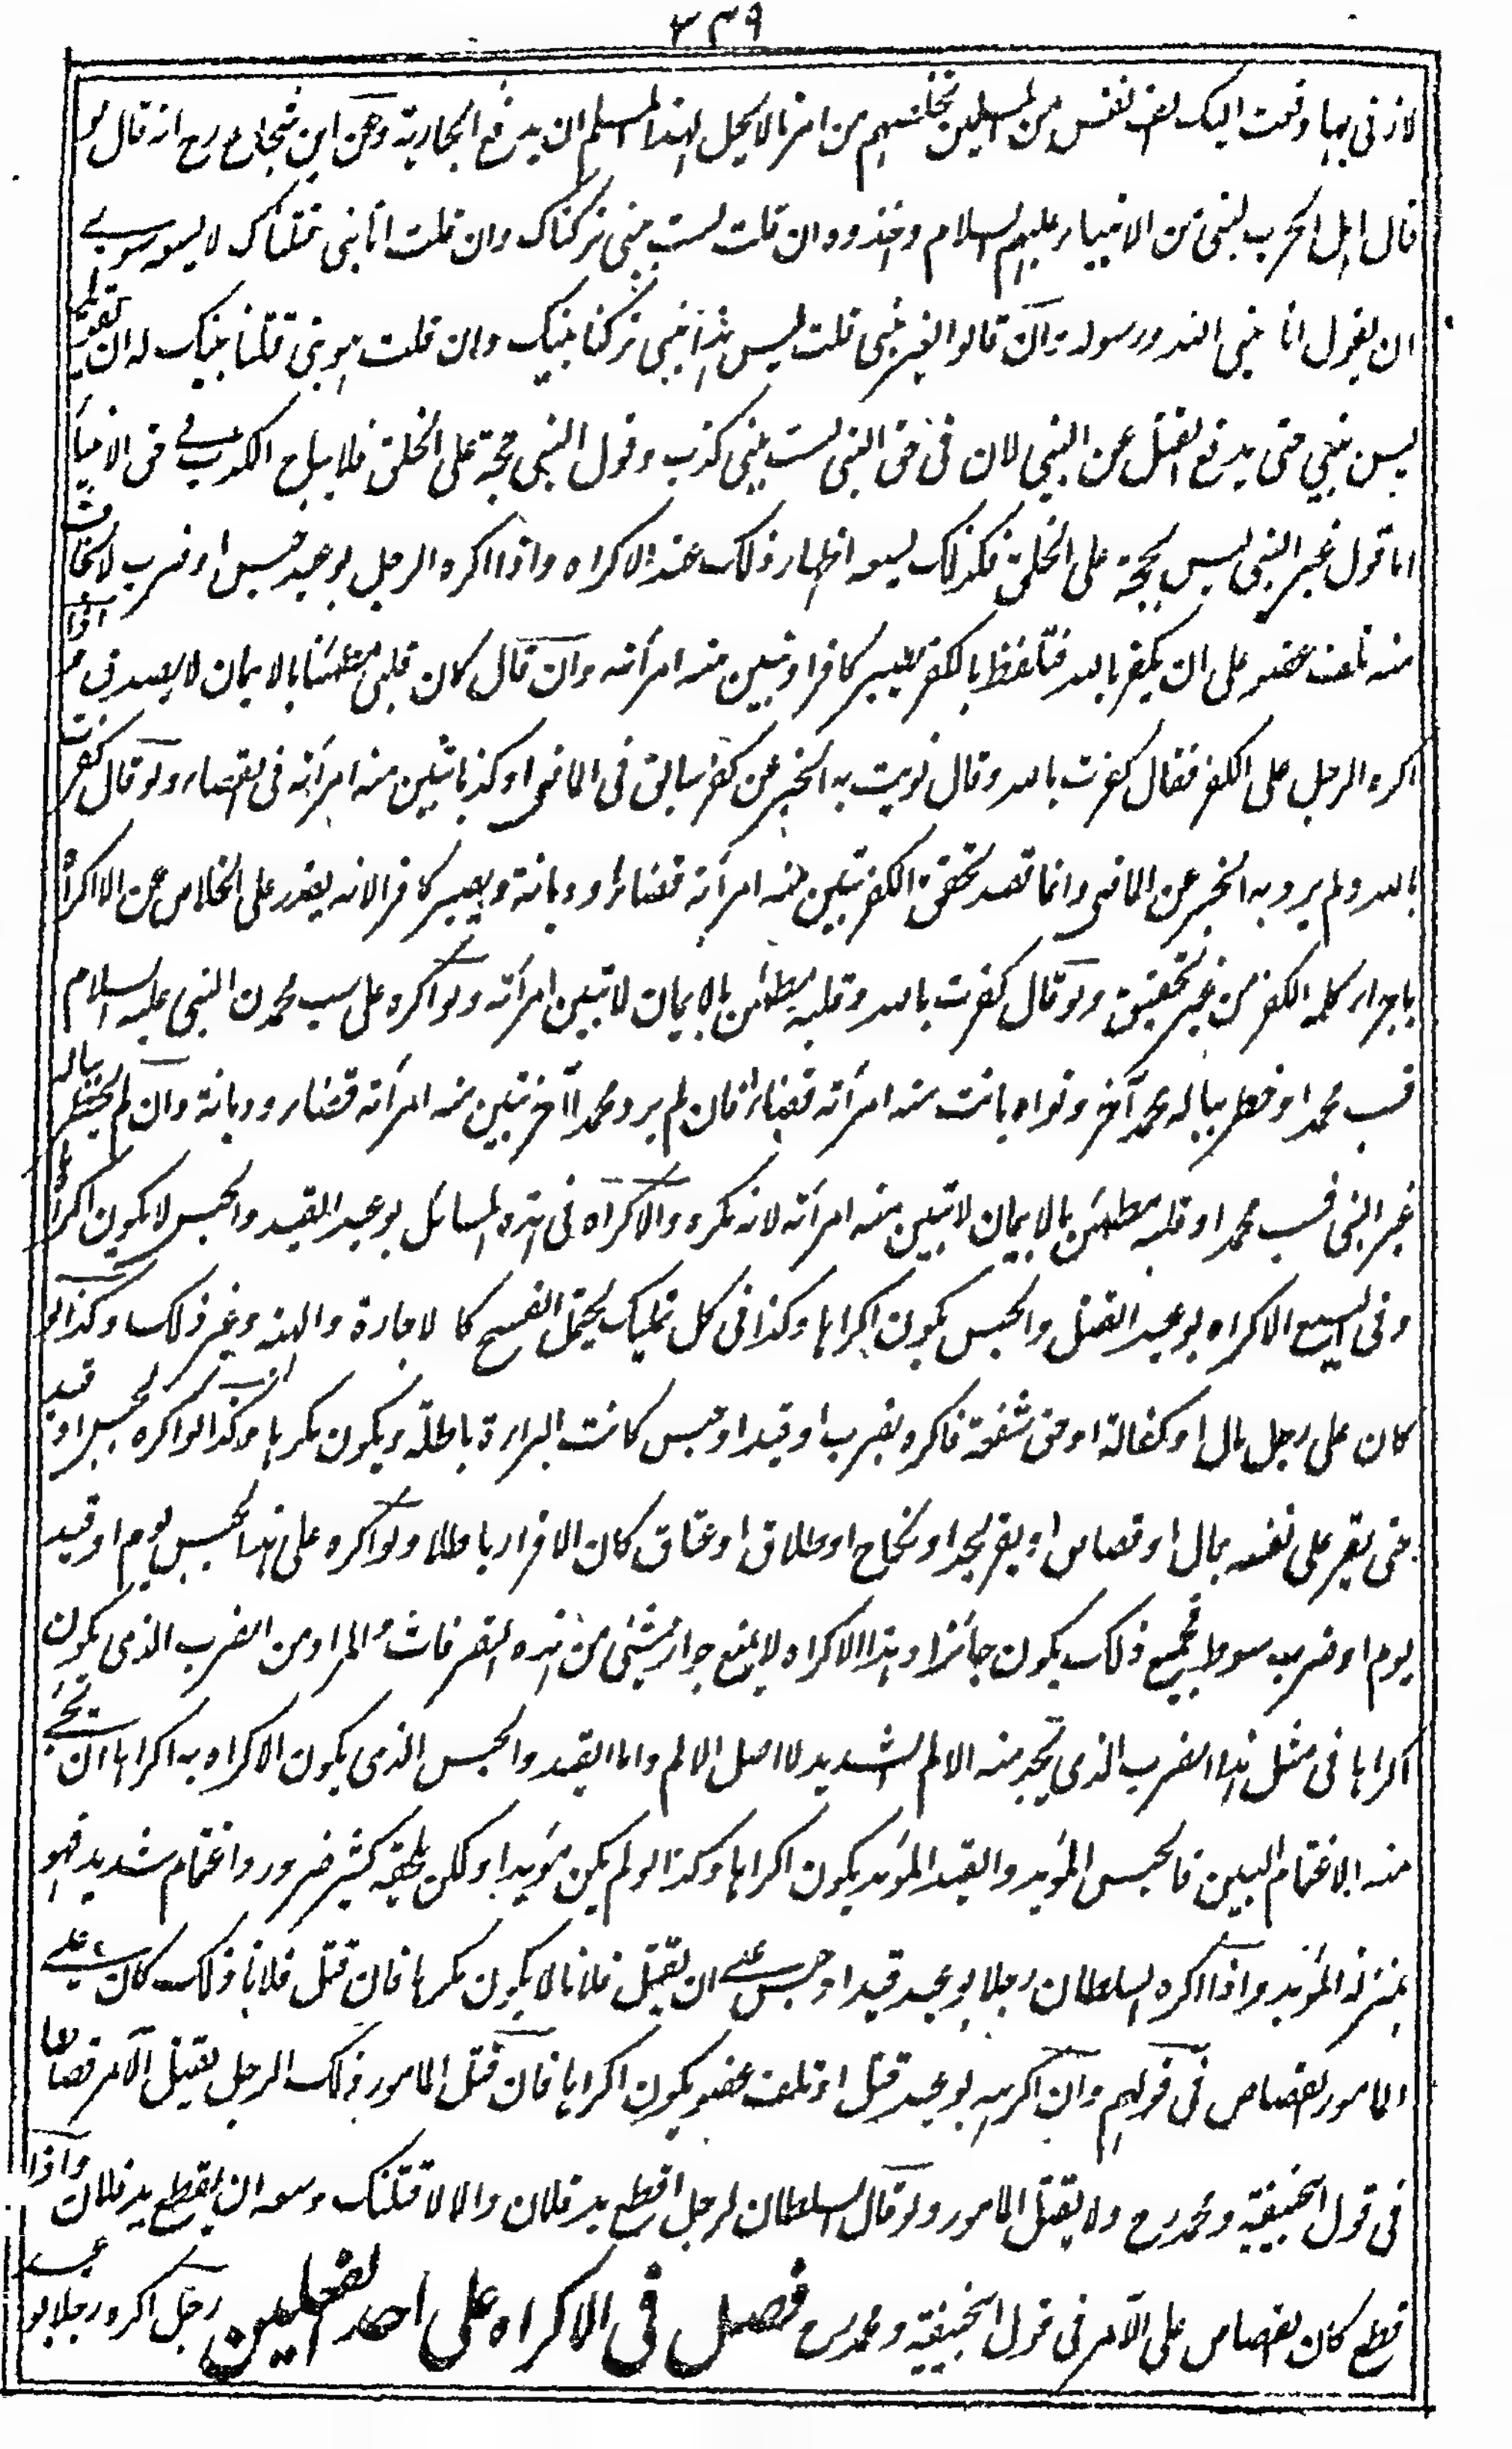 ٣٣٩
لازنى بها دفعت اليك الف نفس من المسلمين تخلصهم من اسرنا لا يحل لهذا المسلم ان يدفع الجارية وعن ابن شجاع رح انه قال لو
قال اهل الحرب لنبى من الانبياء عليهم السلام وخذوه ان قلت لست بنبى تركناك وان قلت انا نبى قتلناك لا يسعه سوى
ان يقول انا نبى الله ورسوله وان قالوا لغير نبى قلت ليس هذا نبى تركنا نبيك وان قلت هو نبى قتلنا نبيك له ان يقول
ليس بنبي حتى يدفع القتل عن النبي لان فى حق النبى لست بنبى كذب وقول النبي حجة على الخلق فلا يباح الكذب فى حق الانبياء
اما قول غير النبى ليس بحجة على الخلق فكذلك يسعه اظهار ذلك عند الاكراه واذا اكره الرجل بوعيد حبس او ضرب لا يخاف
منه تلف عضو على ان يكفر بالله فتلفظ بالكفر يصير كافرا وتبين منه امرأته وان قال كان قلبى مطمئنا بالايمان لا يصدق اذا
اكره الرجل على الكفر فقال كفرت بالله وقال نويت به الخبر عن كفر سابق فى الماضى او كذبا تبين منه امرأته فى القضاء ولو قال كفرت
بالله ولم يرد به الخبر عن الماضى وانما قصد تحقق الكفر تبين منه امرأته قضاء وديانة ويصير كافرا لانه يقدر على الخلاص عن الاكراه
باجراء كلمة الكفر من غير تحقيق ولو قال كفرت بالله وقلبه مطمئن بالايمان لا تبين امرأته ولو اكره على سب محمدن النبى عليه السلام
فسب محمدا وخطر بباله محمد آخر ونواه بانت منه امرأته قضاء فان لم يرد محمدا آخر تبين منه امرأته قضاء وديانة وان لم يخطر بباله
غير النبى فسب محمدا وقلبه مطمئن بالايمان لا تبين منه امرأته لانه مكره والاكراه فى هذه المسائل بوعيد القيد والحبس لا يكون اكراها
وفى البيع الاكراه بوعيد القتل والحبس يكون اكراها وكذا فى كل تمليك يحتمل الفسخ كالاجارة والهبة وغير ذلك وكذا لو
كان على رجل مال او كفالة او حق شفعة فاكره بضرب او قيد او حبس كانت البراءة باطلة ويكون مكرها وكذا لو اكره بحبس او قيد
حتى يقر على نفسه بمال او قصاص او يقر بحد او نكاح او طلاق او عتاق كان الاقرار باطلا ولو اكره على هذا بحبس يوم او قيد
يوم او ضرب سوط فجميع ذلك يكون جائزا وهذا الاكراه لا يمنع جواز شئى من هذه التصرفات والمراد من الضرب الذى يكون
اكراها فى مثل هذا الضرب الذى يجد منه الالم الشديد لا اصل الالم واما القيد والحبس الذى يكون الاكراه به اكراها ان يجئ
منه الاغتمام البين فالحبس المؤبد والقيد المؤبد يكون اكراها وكذا لو لم يكن مؤبدا ولكن يلحقه كثير ضرر واغتمام شديد فهو
بمنزلة المؤبد واذا اكره السلطان رجلا بوعيد قيد او حبس على ان يقتل فلانا لا يكون مكرها فان قتل فلانا ذلك كان على
المامور القصاص فى قولهم وان اكرهه بوعيد قتل او تلف عضو يكون اكراها فان قتل المامور ذلك الرجل يقتل الآمر قصاصا
فى قول ابيحنيفة ومحمد رح ولا يقتل المامور ولو قال السلطان لرجل اقطع يد فلان والا لاقتلنك وسعه ان يقطع يد فلان واذا
قطع كان القصاص على الآمر فى قول ابيحنيفة ومحمد رح فصل فى الاكراه على احد الفعلين رجل اكره رجلا بوعيد